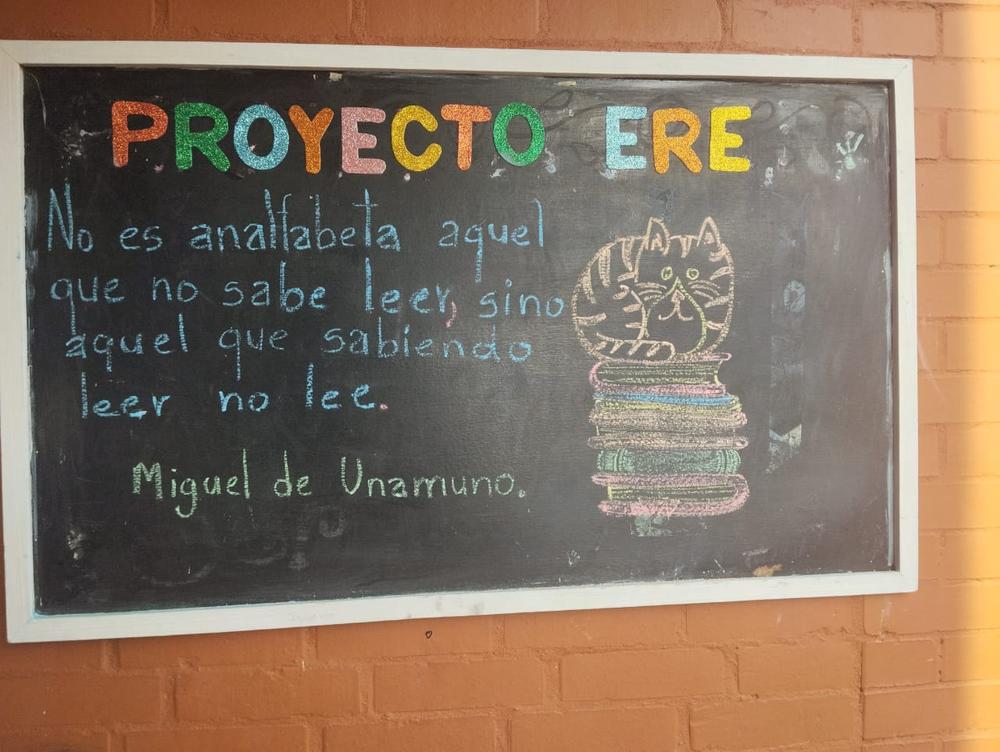 PROYECTO ERE
No es analfabeta aquel
que no sabe leer, sino
aquel que sabiendo
leer no lee.
Miguel de Unamuno.